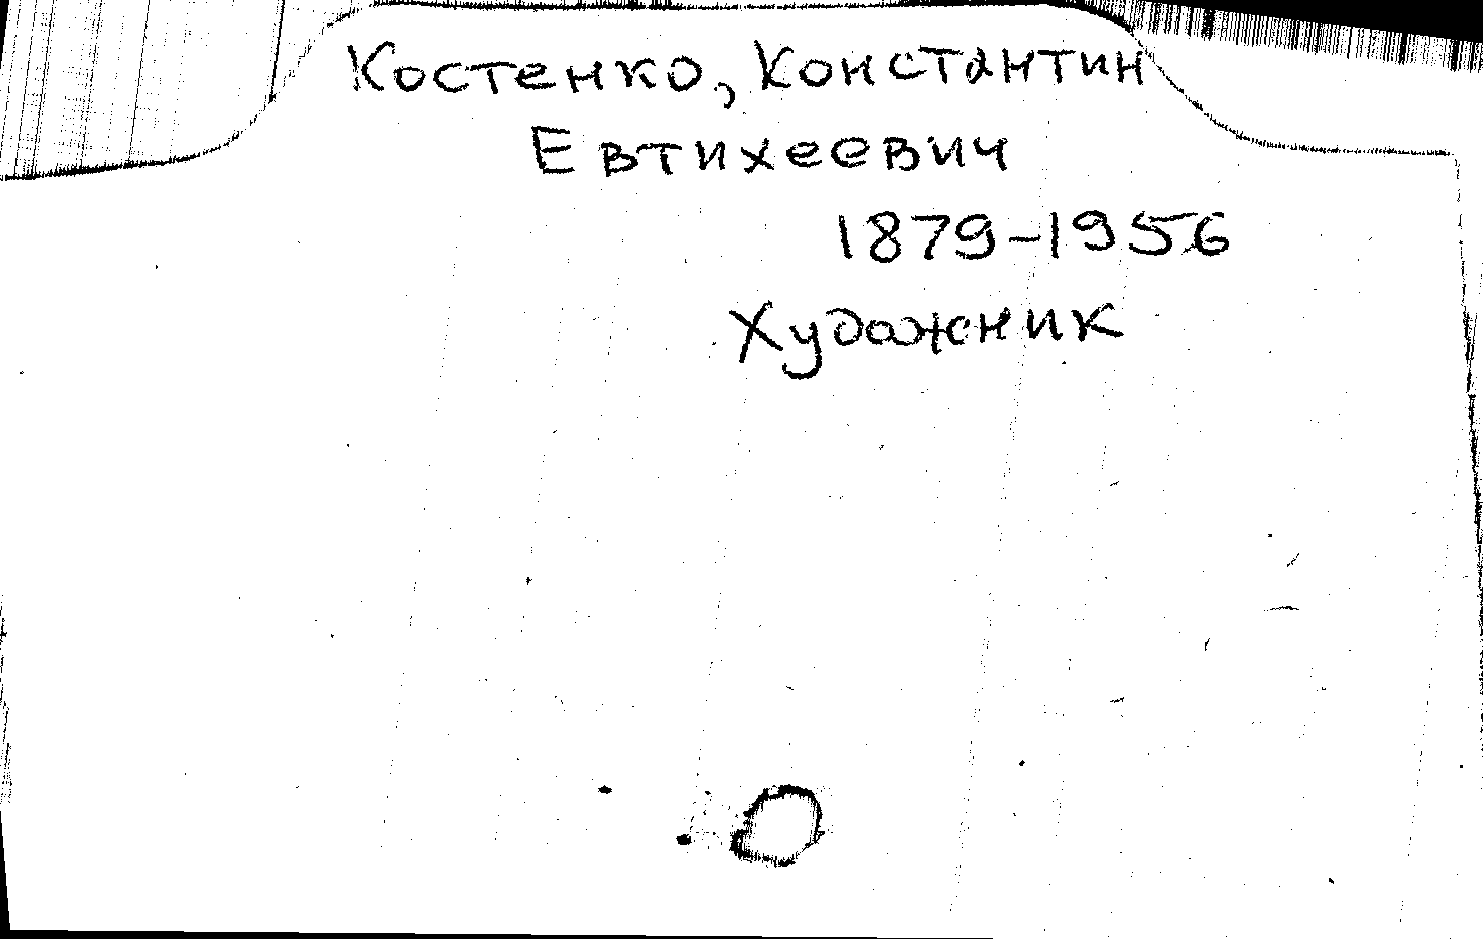 Костенко, Константин
Евтихеевич
1879-1956
Художник